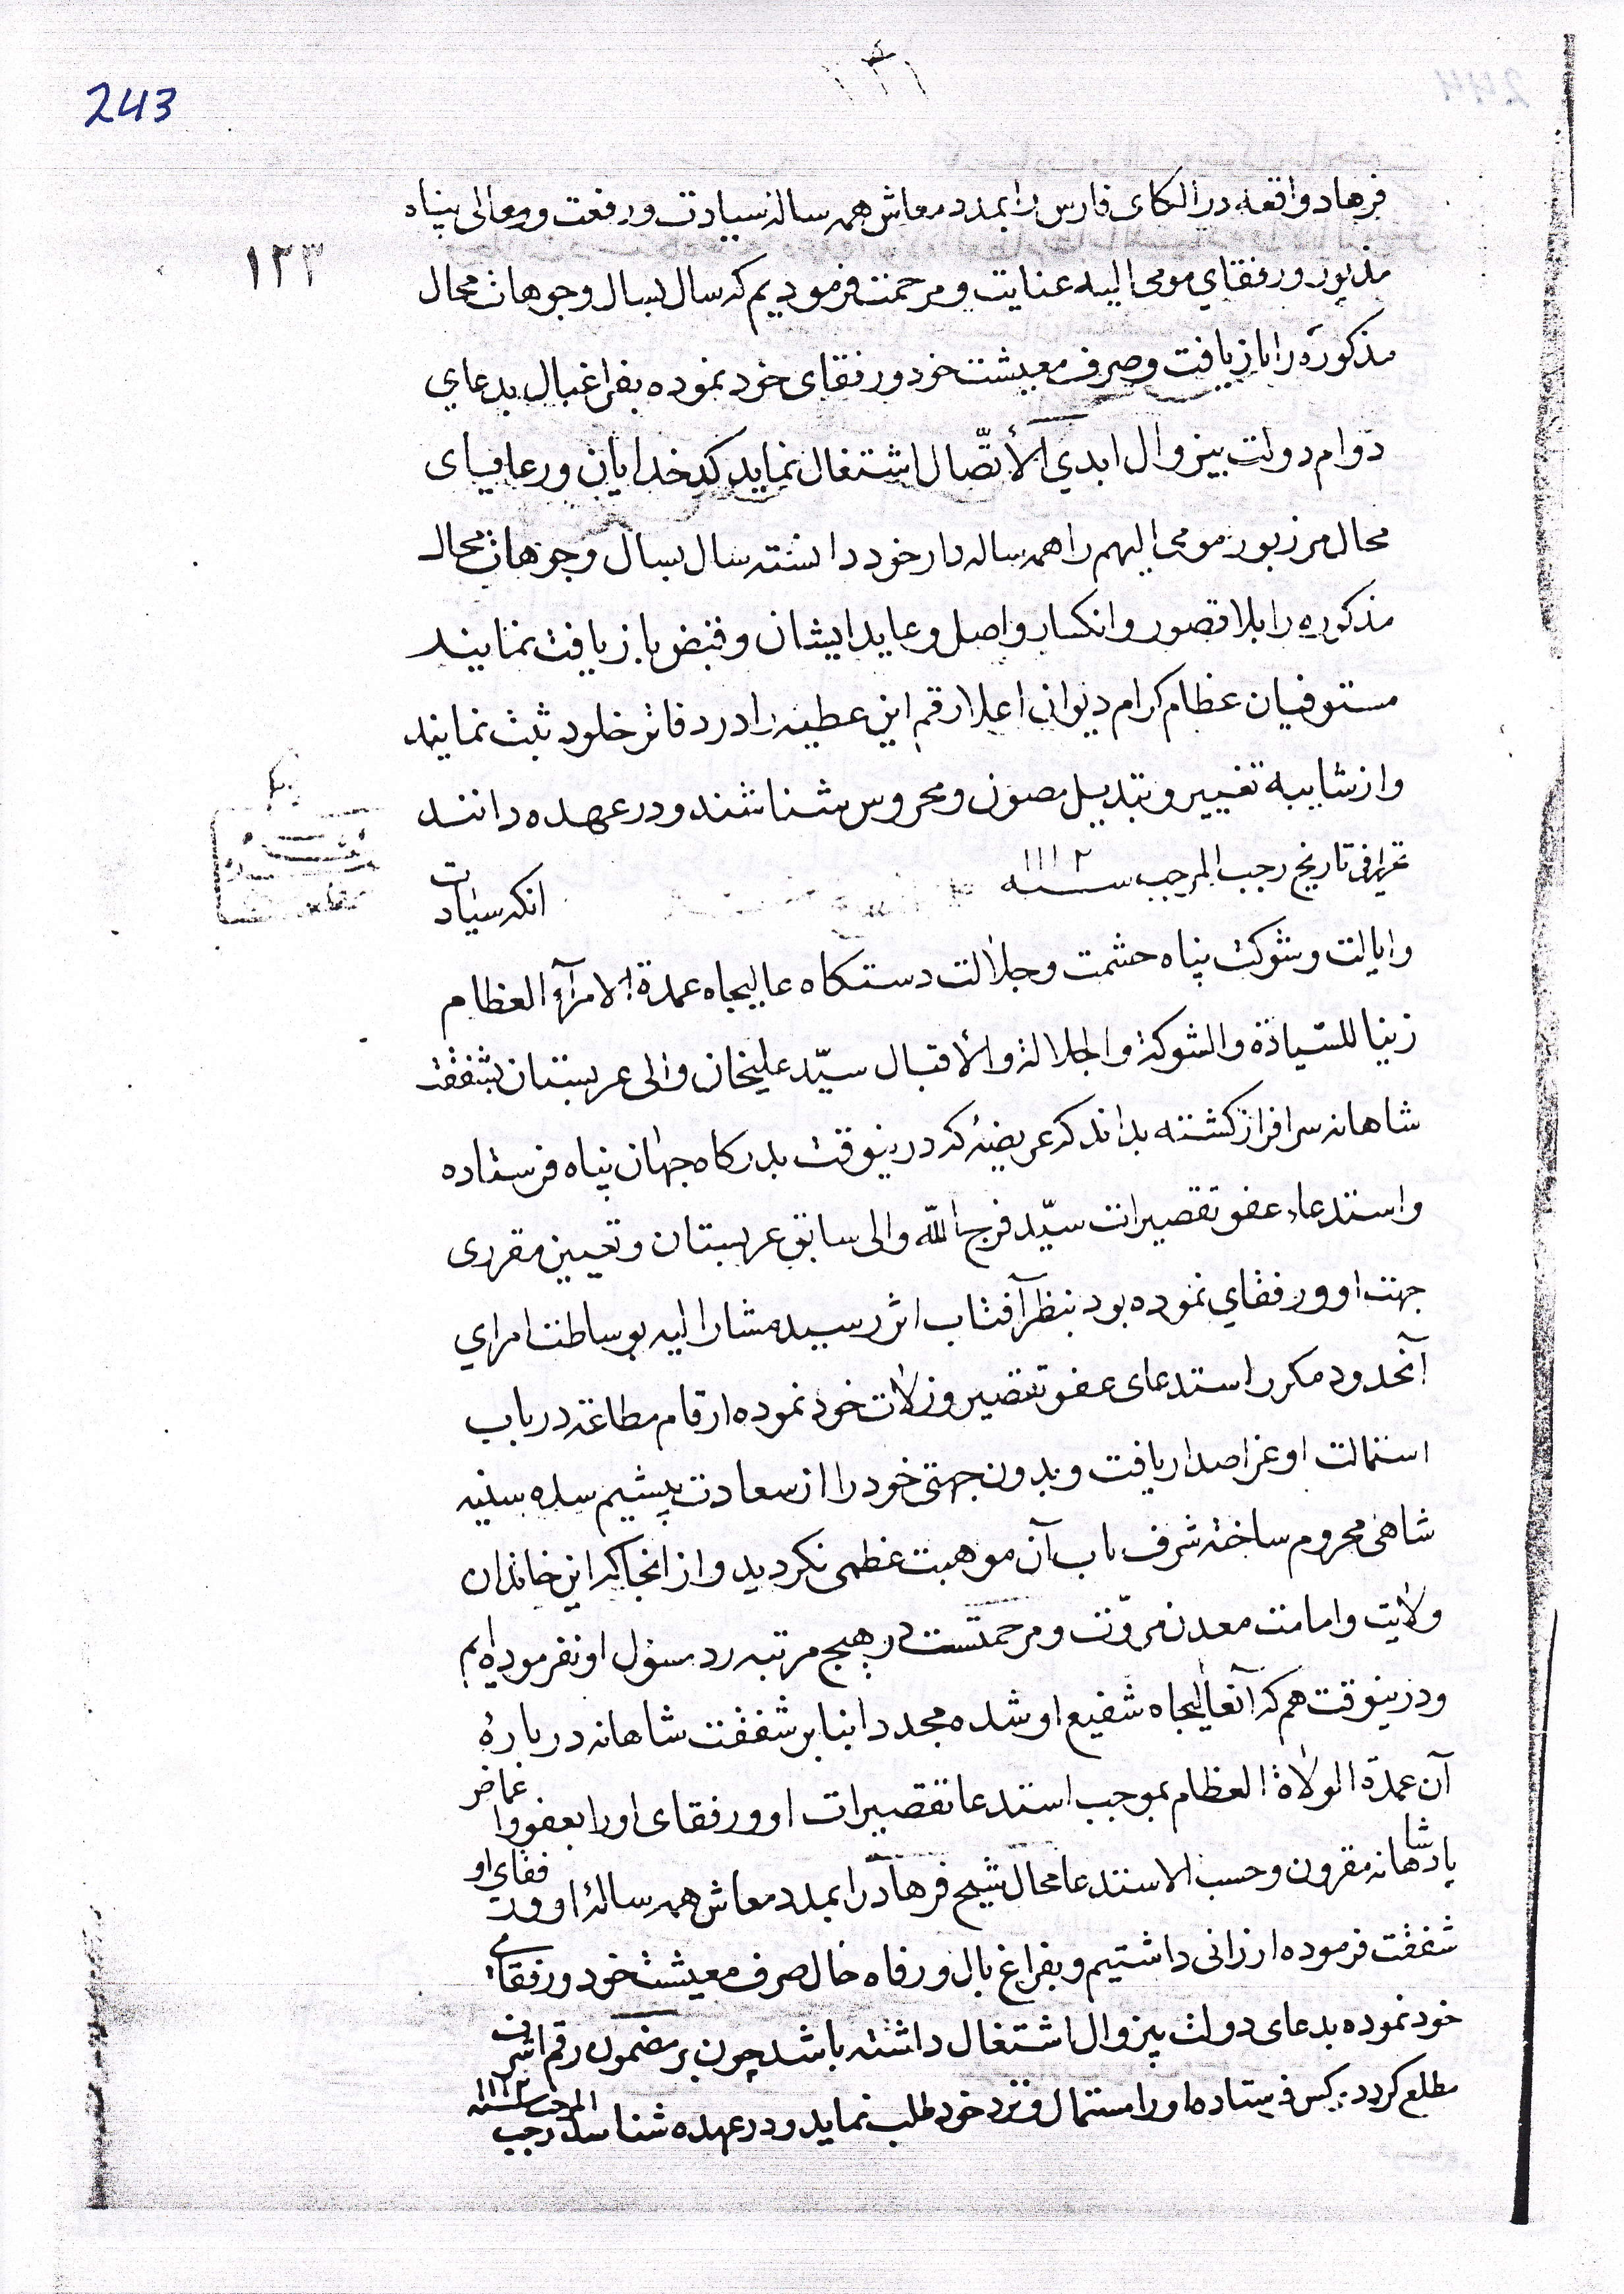 243
۱۳۱
۱۲۳
فرهاد واقعه در الکای فارس را بمدد معاش همه ساله سیادت و رفعت و معالی پناه
مذبور و رفقای مومی الیه عنایت و مرحمت فرمودیم که سال بسال وجوهات محال
مذکوره را بازیافت و صرف معیشت خود و رفقای خود نموده بفراغبال بدعای
دوام دولت بیزوال ابدی الأتّصال اشتغال نماید کدخدایان و رعایای
محال مزبور مومی الیهم را همه ساله دار خود دانسته سال بسال وجوهات محال
مذکوره را بلا قصور و انکسار واصل و عاید ایشان و قبض بازیافت نمایند
مستوفیان عظام کرام دیوانی اعلا رقم این عطیه را در دفاتر خلود ثبت نمایند
و از شایبه تغییر و تبدیل مصون و محروس شناشند و در عهده دانند
تحریرا فی تاریخ رجب المرجب سنه ۱۱۱۲
انکه سیادت
و ایالت و شوکت پناه حشمت و جلالت دستکاه عالیجاه عمدة الامرآء العظام
زینا للسّیادة والشوکة والجلالة والأقبال سیّد علیخان والی عربستان بشفقت
شاهانه سرافراز کشته بداند که عریضه که درینوقت بدرکاه جهان پناه فرستاده
و استدعاء عفو تقصیرات سیّد فرج الله والی سابق عربستان و تعیین مقرری
جهت او و رفقای نموده بود بنظر آفتاب اثر رسید مشارالیه بوساطت امرای
آنحدود مکرر استدعای عفو تقصیر و زلات خود نموده ارقام مطاعه در باب
استمالت او عز اصدار یافت و بدون جهتی خود را از سعادت پیشیم سده سنیه
شاهی محروم ساخته شرف یاب آن موهبت عظمی نکردید و از انجا که این خاندان
ولایت و امامت معدن مروّت و مرحمتست در هیچ مرتبه رد مسؤل او نفرموده ایم
و درینوقت هم که آنعالیجاه شفیع او شده مجددا بنابر شفقت شاهانه در بارهٔ
آن عمدة الولاة العظام بموجب استدعا تقصیرات او و رفقای او را بعفو و اغماض
پادشاهانه مقرون و حسب الاستدعا محال شیح فرهاد را بمدد معاش همه سالهٔ او و رفقای او
شفقت فرموده ارزانی داشتیم و بفراغ بال و رفاه حال صرف معیشت خود و رفقای
خود نموده بدعای دولت بیزوال اشتغال داشته باشد چون بر مضمون رقم اشرف
مطلع کردد کس فرستاده او را استمال و نزد خود طلب نماید و در عهده شناسد رجب المرجب سنه ۱۱۱۲